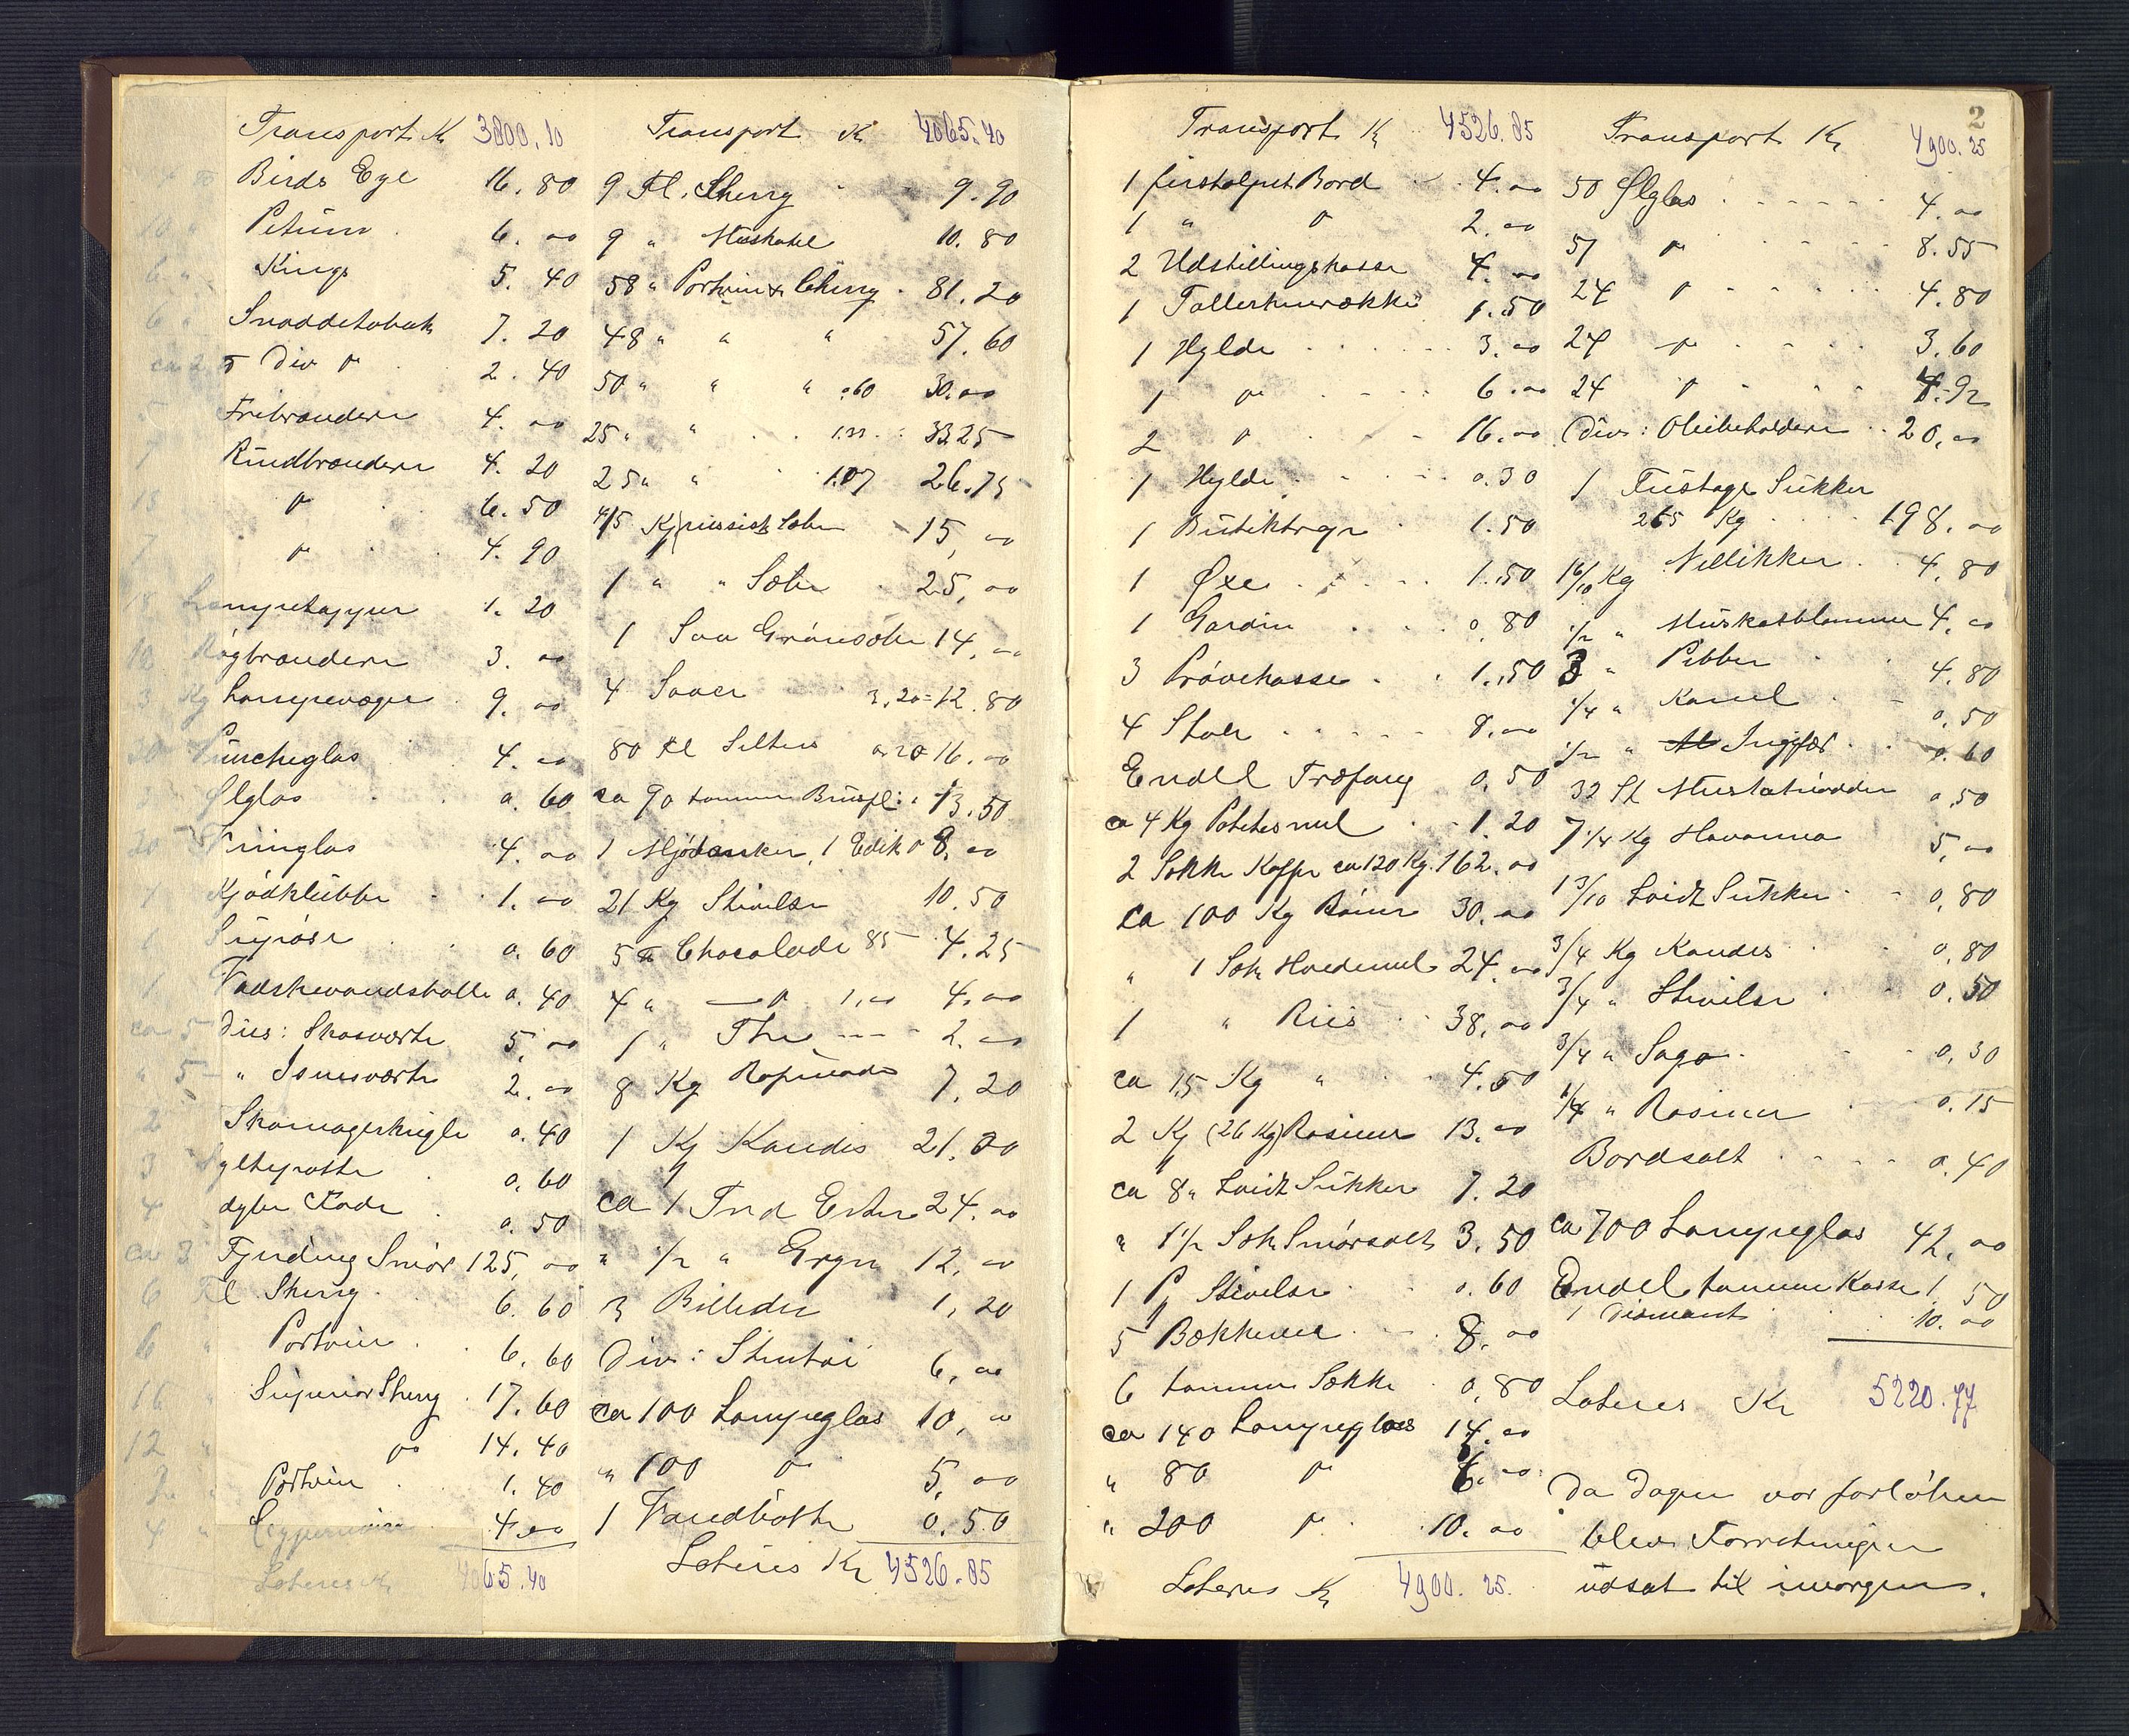 Transport Kr 3800.10
Birds Eye 16.80
10 " Petum 6.00
6 " Kings 5.40
6 " Snaddetobak 7.20
ca 2 ℔ Div do 2.40
5 Fribrændere 4.00
7 Rundbrændere 4.20
13 do 6.50
7 do 4.90
Lampetapper 1.20
10 Røgbrændere 3.00
3 Kg Lampevæger 9.00
20 Puncheglas 4.00
Ølglas 0.60
20 Vinglas 4.00
1 Kjødklubbe 1.00
0.60
1 Vadskevandsballe 0.40
ca 5 Div: Skosværte 5.00
" 5 " 2.00
2 0.40
3 Syltepotte 0.60
4 dybe Fade 0.50
ca 3 Smør 125.00
6 Fl Sherry 6.60
6 " Portvin 6.60
16 " Superior Sherry 17.60
12 " do 14.40
2 " Portvin 1.40
4 " 4.00
Lateres Kr 4065.40
Transport Kr 4065.40
9 Fl. Sherry 9.90
9 " Muskatel 10.80
58 " Portvin & Cherry 81.20
48 " " " 57.60
50 " " " 0.60 30.00
25 " " 1.33 33.25
25 " " 1.07 26.75
15.00
1 " " Sæbe 25.00
1 Saa Grønsæbe 14.00
4 Saaer 3,20 = 12.80
80 Fl Selters 0.20 16.00
ca 90 tomme Brusfl: 13.50
1 Mjødanker, 1 Edik do 8.00
21 Kg Stivelse 10.50
5 ℔ Chocolade 85 4.25
4 " do 1,00 4.00
1 " The 2.00
8 Kg Rafinade 7.20
1 Kj Kandis 21.00
ca 1 Tnd Erter 24.00
" 1/2 " Gryn 12.00
3 Billeder 1,20
Div: Stentøi 6,00
ca 100 Lampeglas 10,00
" 100 do 5,00
1 Vandbøtte 0.50
Lateris Kr 4526.85
2
Transport Kr 4526.85
1 firstolpet Bord 4.00
1 " do 2.00
2 Udstillingskasse 4.00
1 Tallerkenrække 1.50
1 Hylde 3.00
1 do 6.00
2 do 16.00
1 Hylde 0.30
1 Butiktrap 1.50
1 Øxe 1.50
1 Gardin 0.80
3 Prøvekasse 1.50
4 Stole 8.00
Endel Træfang 0.50
ca 4 Kg Potetesmel 1.20
2 Sække Kaffe ca 120 Kg. 162.00
ca 100 Kg Bønner 30.00
" 1 Sæk Hvedemel 24.00
1 " Riis 38.00
ca 15 Kg " 4.50
2 Kj (26 Kg) Rosiner 13.00
ca 8 " hvidt Sukker 7.20
" 1 1/2 Sæk Smørsalt 3.50
1 P Stivelse 0.60
5 Bækkener 8.00
6 tomme Sække 0.80
ca 140 Lampeglas 14.00
" 80 do 6.00
" 200 do 10.00
Lateres Kr 4900.25
Transport Kr 4900.25
50 Ølglas 4.00
57 do 8.55
24 do 4.80
24 do 3.60
24 do 4.92
Div: Oliebeholdere 20.00
1 Fustage Sukker
265 Kg 198.00
16/10 Kg Nellikker 4.80
1/2 " Muskatblomme 4.00
3 " Pebber 4.80
1/4 " Kanel 0.50
1/2 " Ingefær 0.60
32 St Muskatnødder 0.50
7 1/4 Kg Havanna 5.00
1 3/10 hvidt Sukker 0.80
3/4 Kg Kandis 0.80
3/4 " Stivelse 0.50
3/4 " Sago 0.30
1/4 " Rosiner 0.15
Bordsalt 0.40
ca 700 Lampeglas 42.00
Endel tomme Kasse 1.50
1 Diamant 10.00
Lateres Kr 5220.77
Da Dagen var forløben
blev Forretningen
udsat til imorgen.